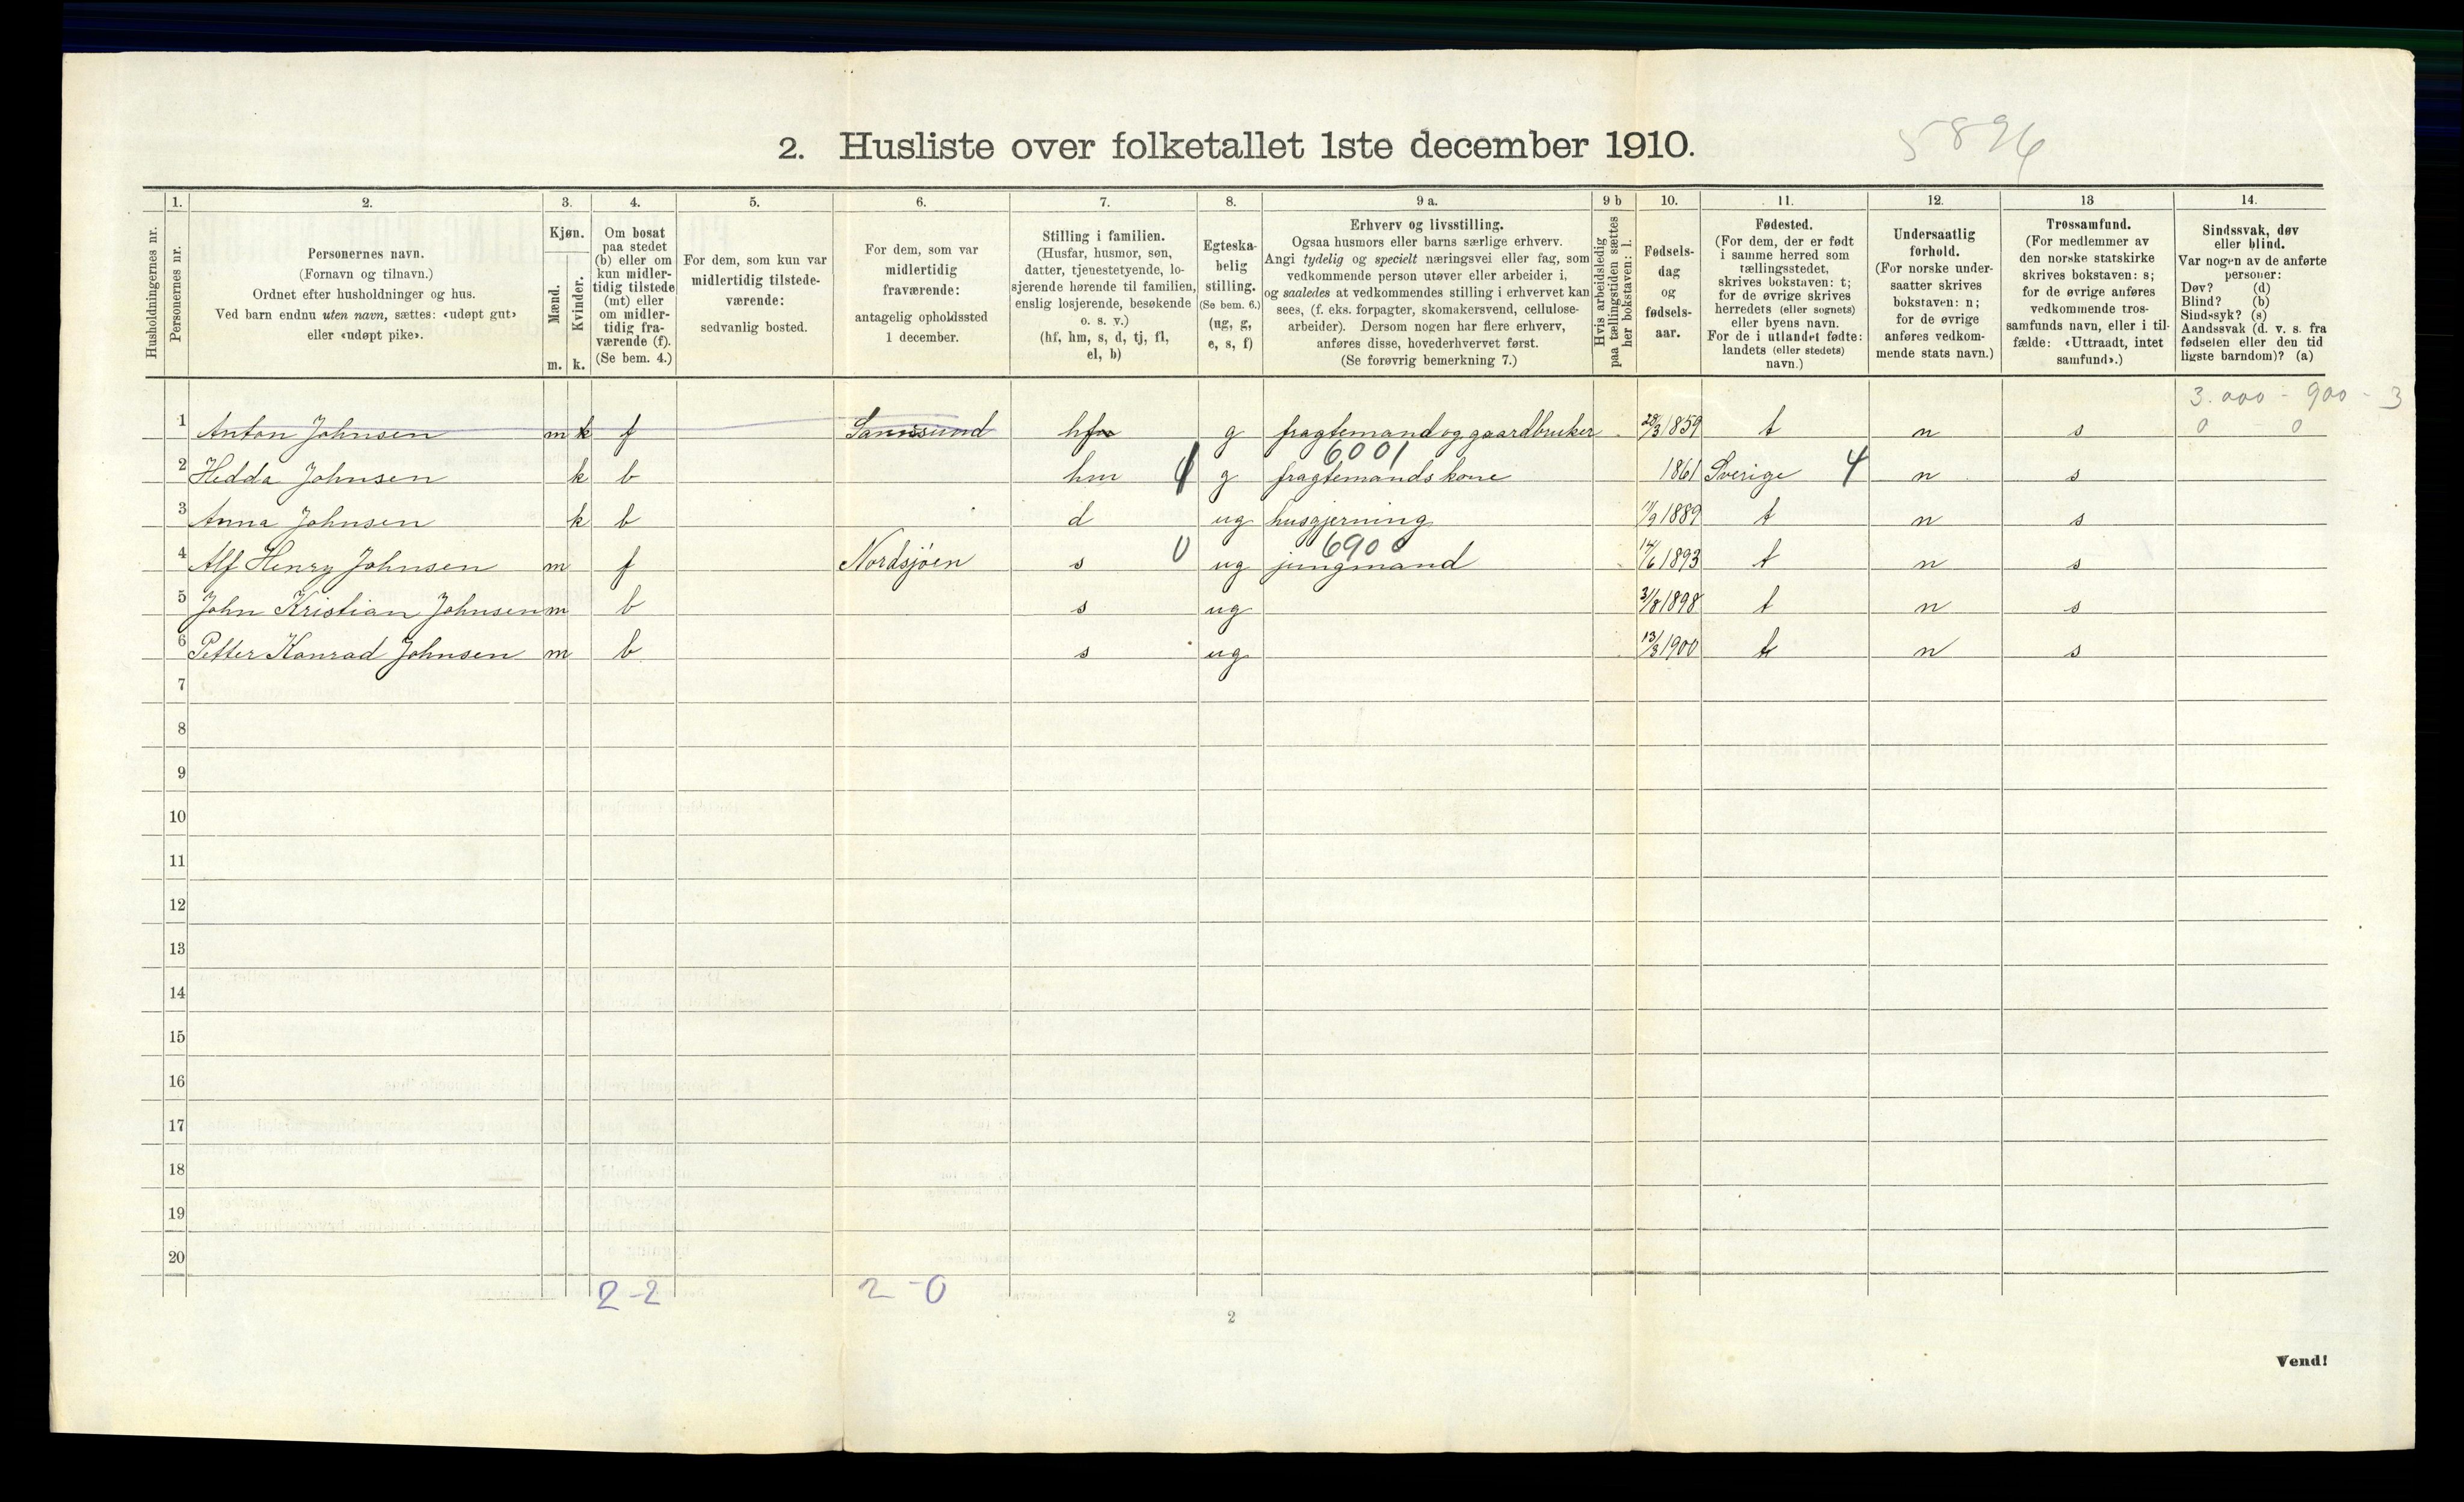 2. Husliste over folketallet 1ste december 1910.
5896
1. 2. 3. 4. 5. 6. 7. 8. 9 a. 9 b 10. 11. 12. 13 14.
Husholdningernes nr.
Personernes nr.
Personernes navn.
(Fornavn og tilnavn.)
Ordnet efter husholdninger og hus.
Ved barn endnu uten navn, sættes: «udøpt gut»
eller «udøpt pike».
Kjøn.
Mænd.
Kvinder.
m. k.
Om bosat
paa stedet
(b) eller om
kun midler-
tidig tilstede
(mt) eller
om midler-
tidig fra-
værende (f).
(Se bem. 4.)
For dem, som kun var
midlertidig tilstede-
værende:
sedvanlig bosted.
For dem, som var
midlertidig
fraværende:
antagelig opholdssted
1 december.
Stilling i familien.
(Husfar, husmor, søn,
datter, tjenestetyende, lo-
sjerende hørende til familien,
enslig losjerende, besøkende
o. s. v.)
(hf, hm, s, d, tj, fl,
el, b)
Egteska-
belig
stilling.
(Se bem. 6.)
(ug, g,
e, s, f)
Erhverv og livsstilling.
Ogsaa husmors eller barns særlige erhverv.
Angi tydelig og specielt næringsvei eller fag, som
vedkommende person utøver eller arbeider i,
og saaledes at vedkommendes stilling i erhvervet kan
sees, (f. eks. forpagter, skomakersvend, cellulose-
arbeider). Dersom nogen har flere erhverv,
anføres disse, hovederhvervet først.
(Se forøvrig bemerkning 7.)
Hvis arbeidsledig
paa tællingstiden sættes
her bokstaven: l.
Fødsels-
dag
og
fødsels-
aar.
Fødested.
(For dem, der er født
i samme herred som
tællingsstedet,
skrives bokstaven: t;
for de øvrige skrives
herredets (eller sognets)
eller byens navn.
For de i utlandet fødte:
landets (eller stedets)
navn.)
Undersaatlig
forhold.
(For norske under-
saatter skrives
bokstaven: n;
for de øvrige
anføres vedkom-
mende stats navn.)
Trossamfund.
(For medlemmer av
den norske statskirke
skrives bokstaven: s;
for de øvrige anføres
vedkommende tros-
samfunds navn, eller i til-
fælde: «Uttraadt, intet
samfund».)
Sindssvak, døv
eller blind.
Var nogen av de anførte
personer:
Døv? (d)
Blind? (b)
Sindssyk? (s)
Aandssvak (d. v. s. fra
fødselen eller den tid-
ligste barndom)? (a)
3.000 - 900 - 3
1 Anton Johnsen m k f Sannesund hf g fragtemand og gaardbruker 28/3 1859 t n s 0 0
6001
2 Hedda Johnsen k b hm g fragtemands kone 1861 Sverige 4 n s
3 Anna Johnsen k b d ug husgjerning 11/9 1889 t n s
6900
4 Alf Henry Johnsen m f Nordsjøen s 0 ug jungmand 14/6 1893 t n s
5 John Kristian Johnsen m b s ug 31/8 1898 t n s
6 Petter Konrad Johnsen m b s ug 13/3 1900 t n s
7
8
9
10
11
12
13
14
15
16
17
18
19
20
2-2 2-0
2
Vend!